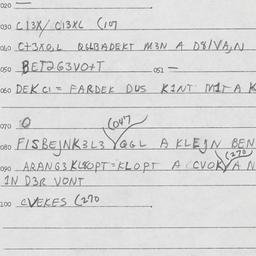 020 —
030 C13X/ C13XL (107
040 C+3XO,L QGLBADEKT M3N A D8/VA,N
050 BET2G3VO+T 051 —
060 DEK C1 = FARDEK DUS K1NT M1T A K
070 O
(047
080 FISBEJNK3L3 QGL A KLEJN BEN
(270
090 ARANG3KL8OPT=KLOPT A CVOK A N
1N D3R VONT
100 CVEKES (270